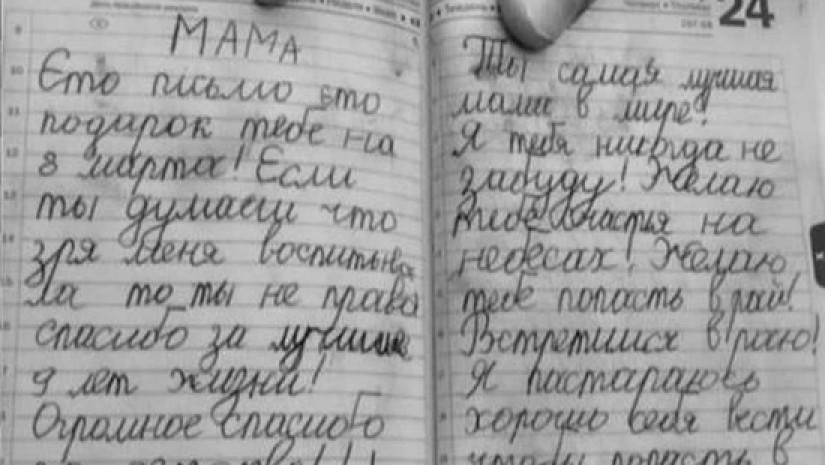 24
МАМА
Єто письмо єто
подарок тебе на
8 марта! Если
ты думаеш что
зря меня воспитыва
ла то ты не права
спасибо за лучшие
9 лет жизни!
Огромное спасибо
Ты самая лучшая
мама в мире!
Я тебя никогда не
забуду! Желаю
тебе счастья на
небесах! Желаю
тебе попасть в рай!
Встретимся в раю!
Я пастараюсь
хорошо себя вести
чтобы попасть в